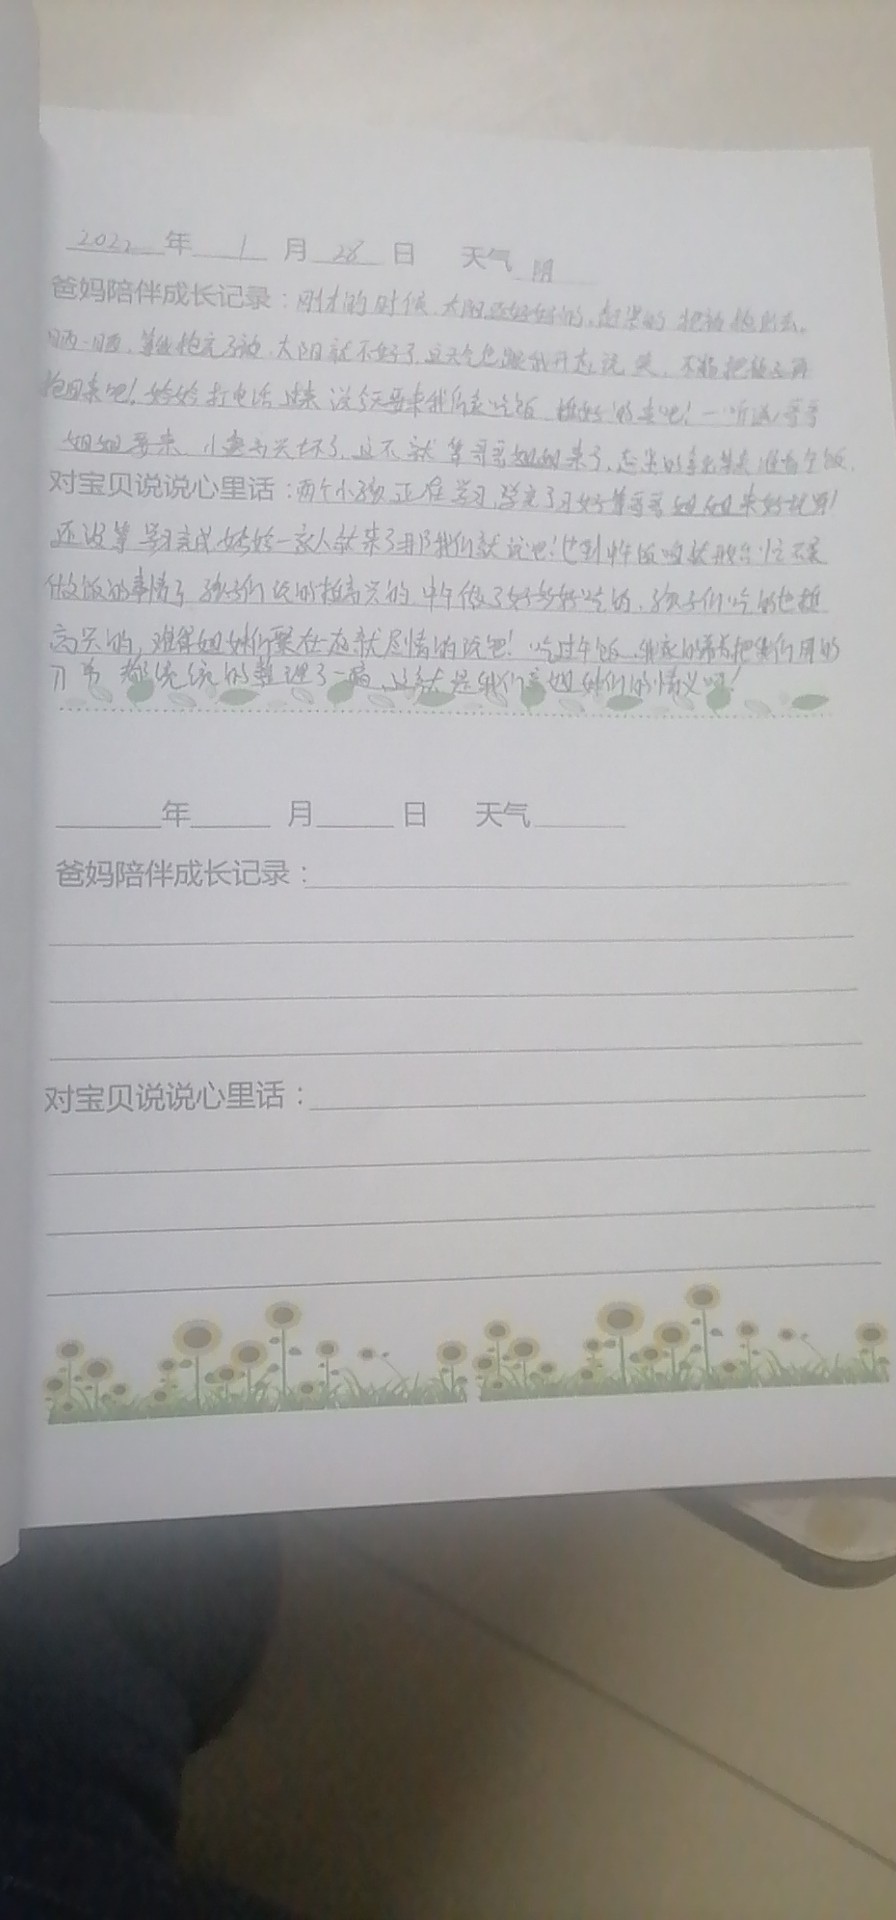 2022年 1 月 28 日 天气 阴
爸妈陪伴成长记录：刚才的时候，太阳还好好的，赶紧的把被抱出去
晒一晒，等抱完了被，太阳就不好了，这天气也跟我开玩笑，不把被子再
抱回来吧！打电话过来说今天要来我们家吃饭，挺好的来吧！一听说哥哥
姐姐要来，小高兴坏了，这不就等哥哥姐姐来了，赶紧的准备午饭，
对宝贝说说心里话：两个小孩正在学习，学完了习好等哥哥姐姐来好玩！
还没等学习完成一家人就来了那我们就说吧！到午饭
做饭的事情了，孩子们玩的挺高兴的，中午做了好多好吃的，孩子们吃的也挺
高兴的，难得姐妹们聚在一起就尽情的玩吧！吃过午饭，把我们用的
统统的整理了一遍，这就是我们姐妹们的情义啊！
年 月 日 天气
爸妈陪伴成长记录：
对宝贝说说心里话：